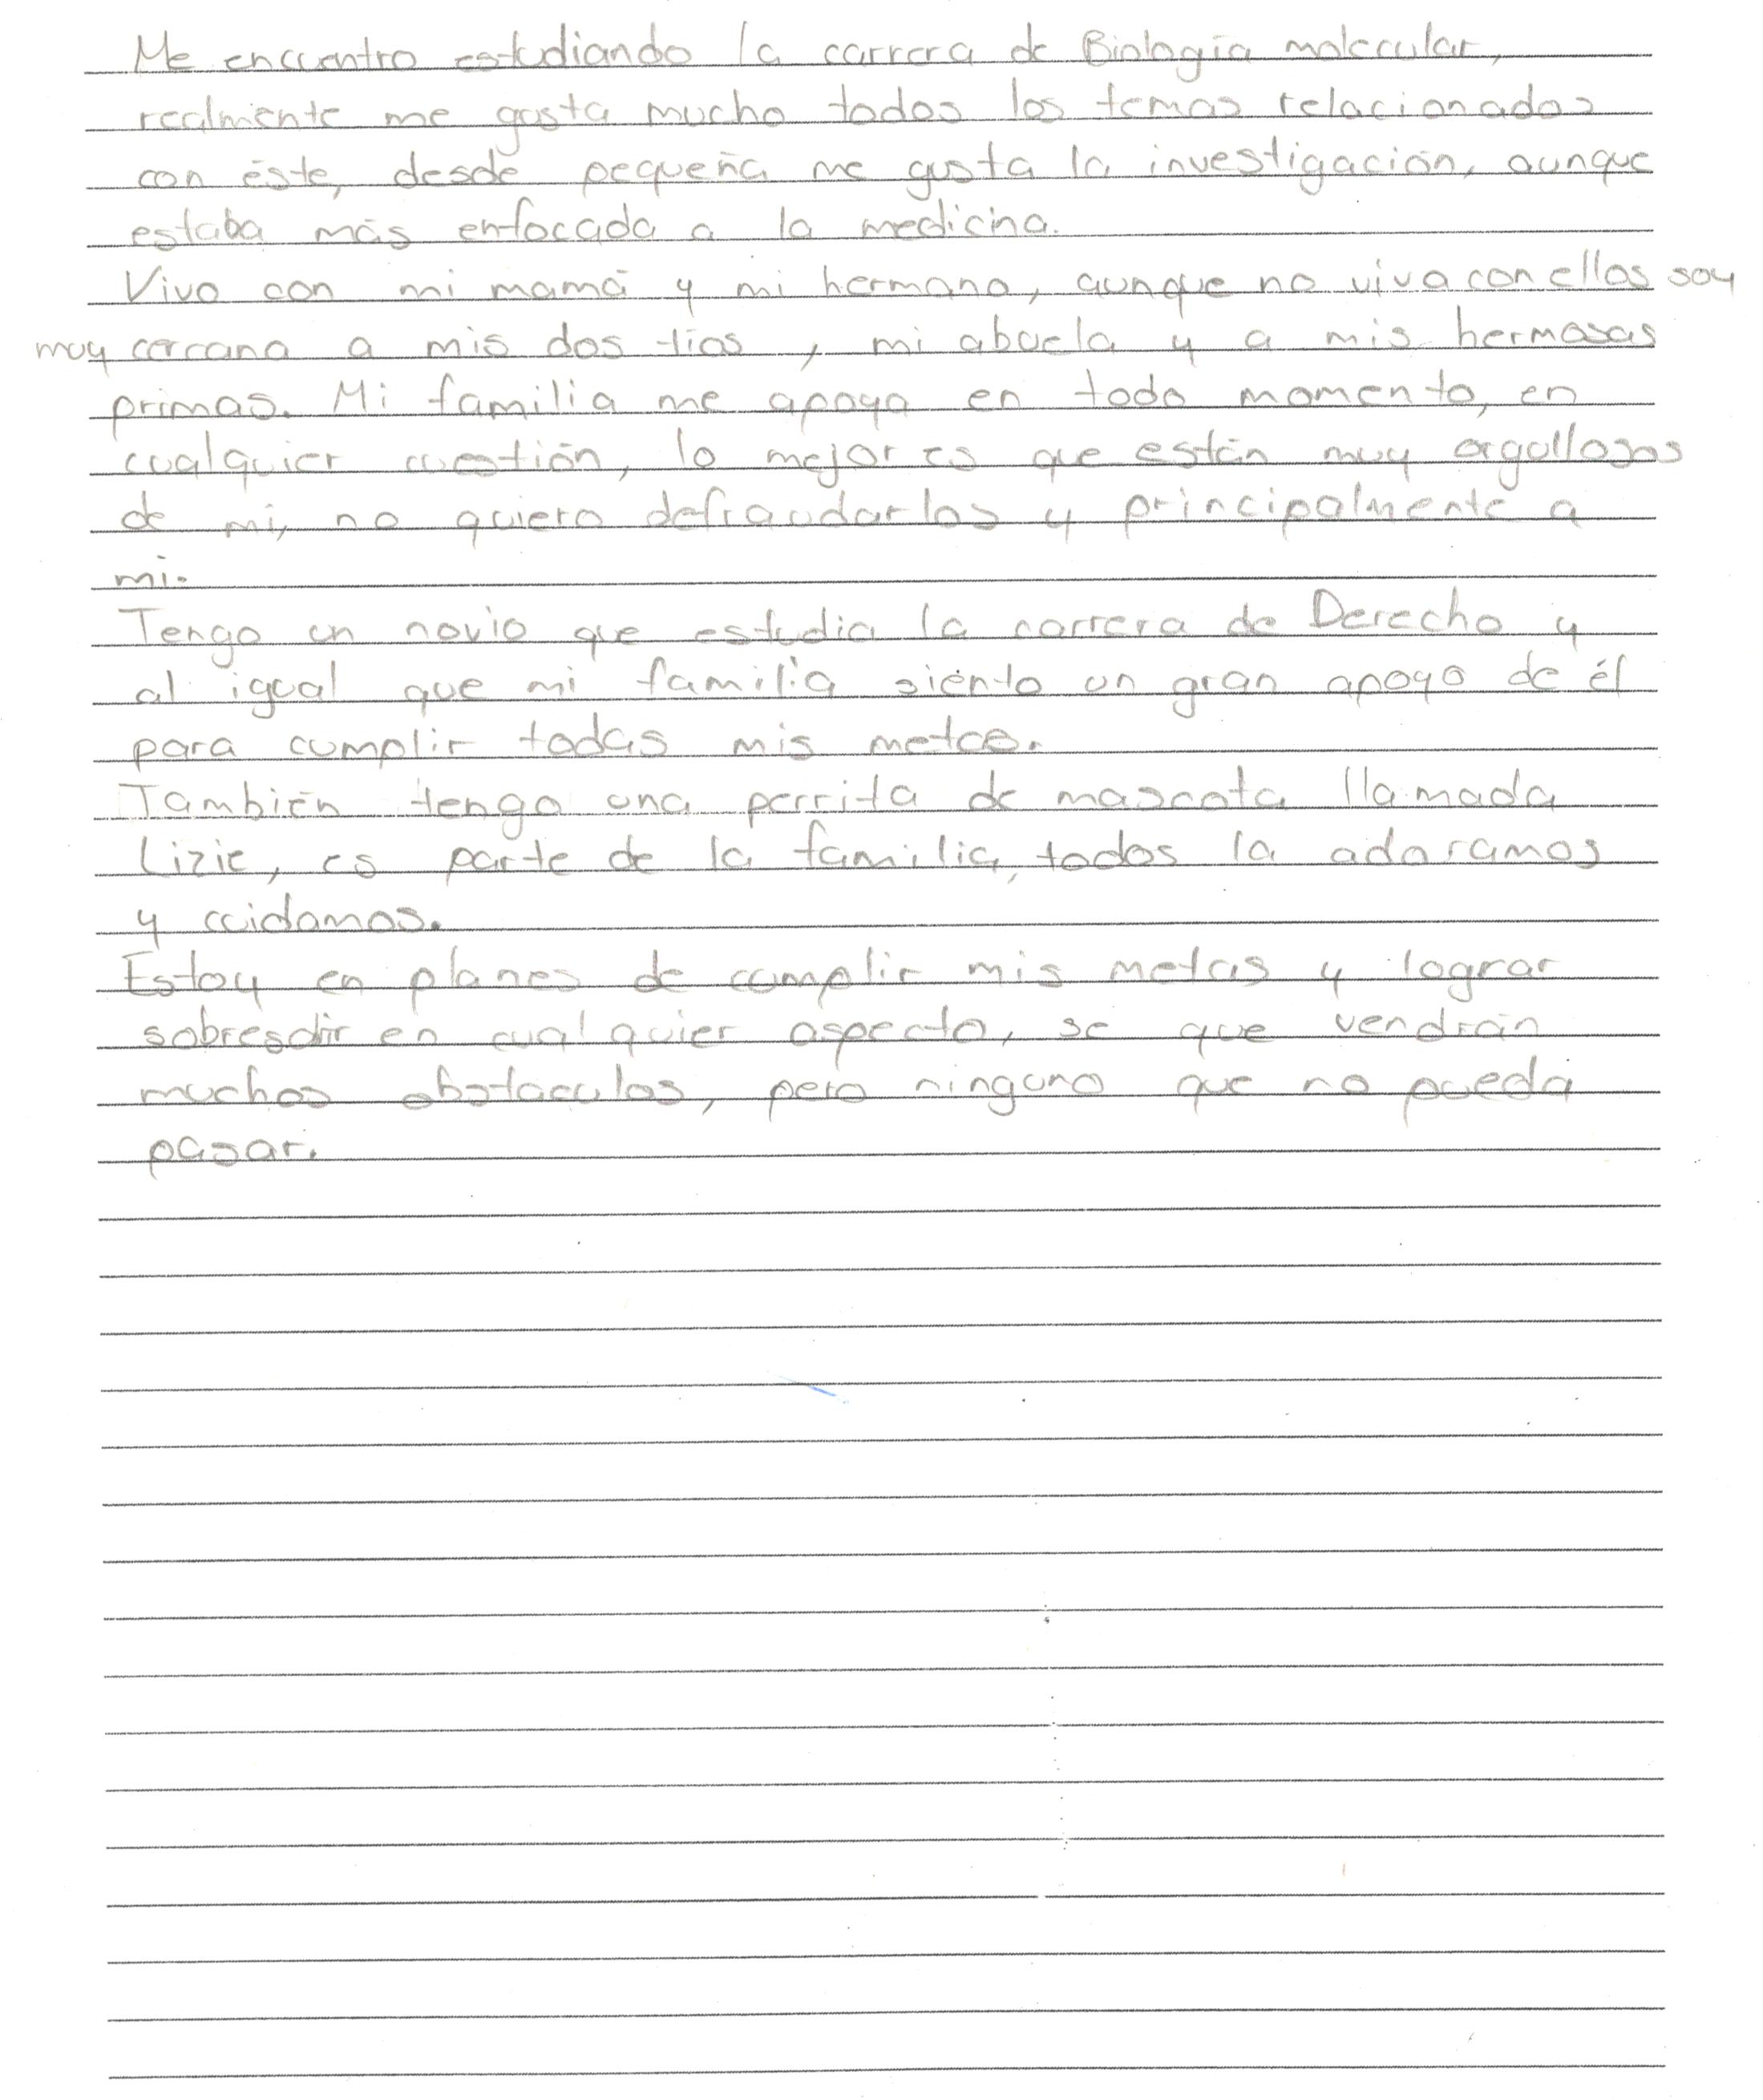 Me encuentro estudiando la carrera de Biología molecular,
realmente me gusta mucho todos los temas relacionados
con éste, desde pequeña me gusta la investigación, aunque
estaba más enfocada a la medicina.
Vivo con mi mamá y mi hermano, aunque no viva con ellos soy
muy cercana a mis dos tíos, mi abuela y a mis hermosas
primas. Mi familia me apoya en todo momento, en
cualquier cuestión, lo mejor es que están muy orgullosos
de mi, no quiero defraudarlos y principalmente a
mi.
Tengo un novio que estudia la carrera de Derecho y
al igual que mi familia siento un gran apoyo de él
para cumplir todas mis metas.
También tengo una perrita de mascota llamada
Lizie, es parte de la familia, todos la adoramos
y cuidamos.
Estoy en planes de cumplir mis metas y lograr
sobresalir en cualquier aspecto, se que vendrán
muchos obstaculos, pero ninguno que no pueda
pasar.